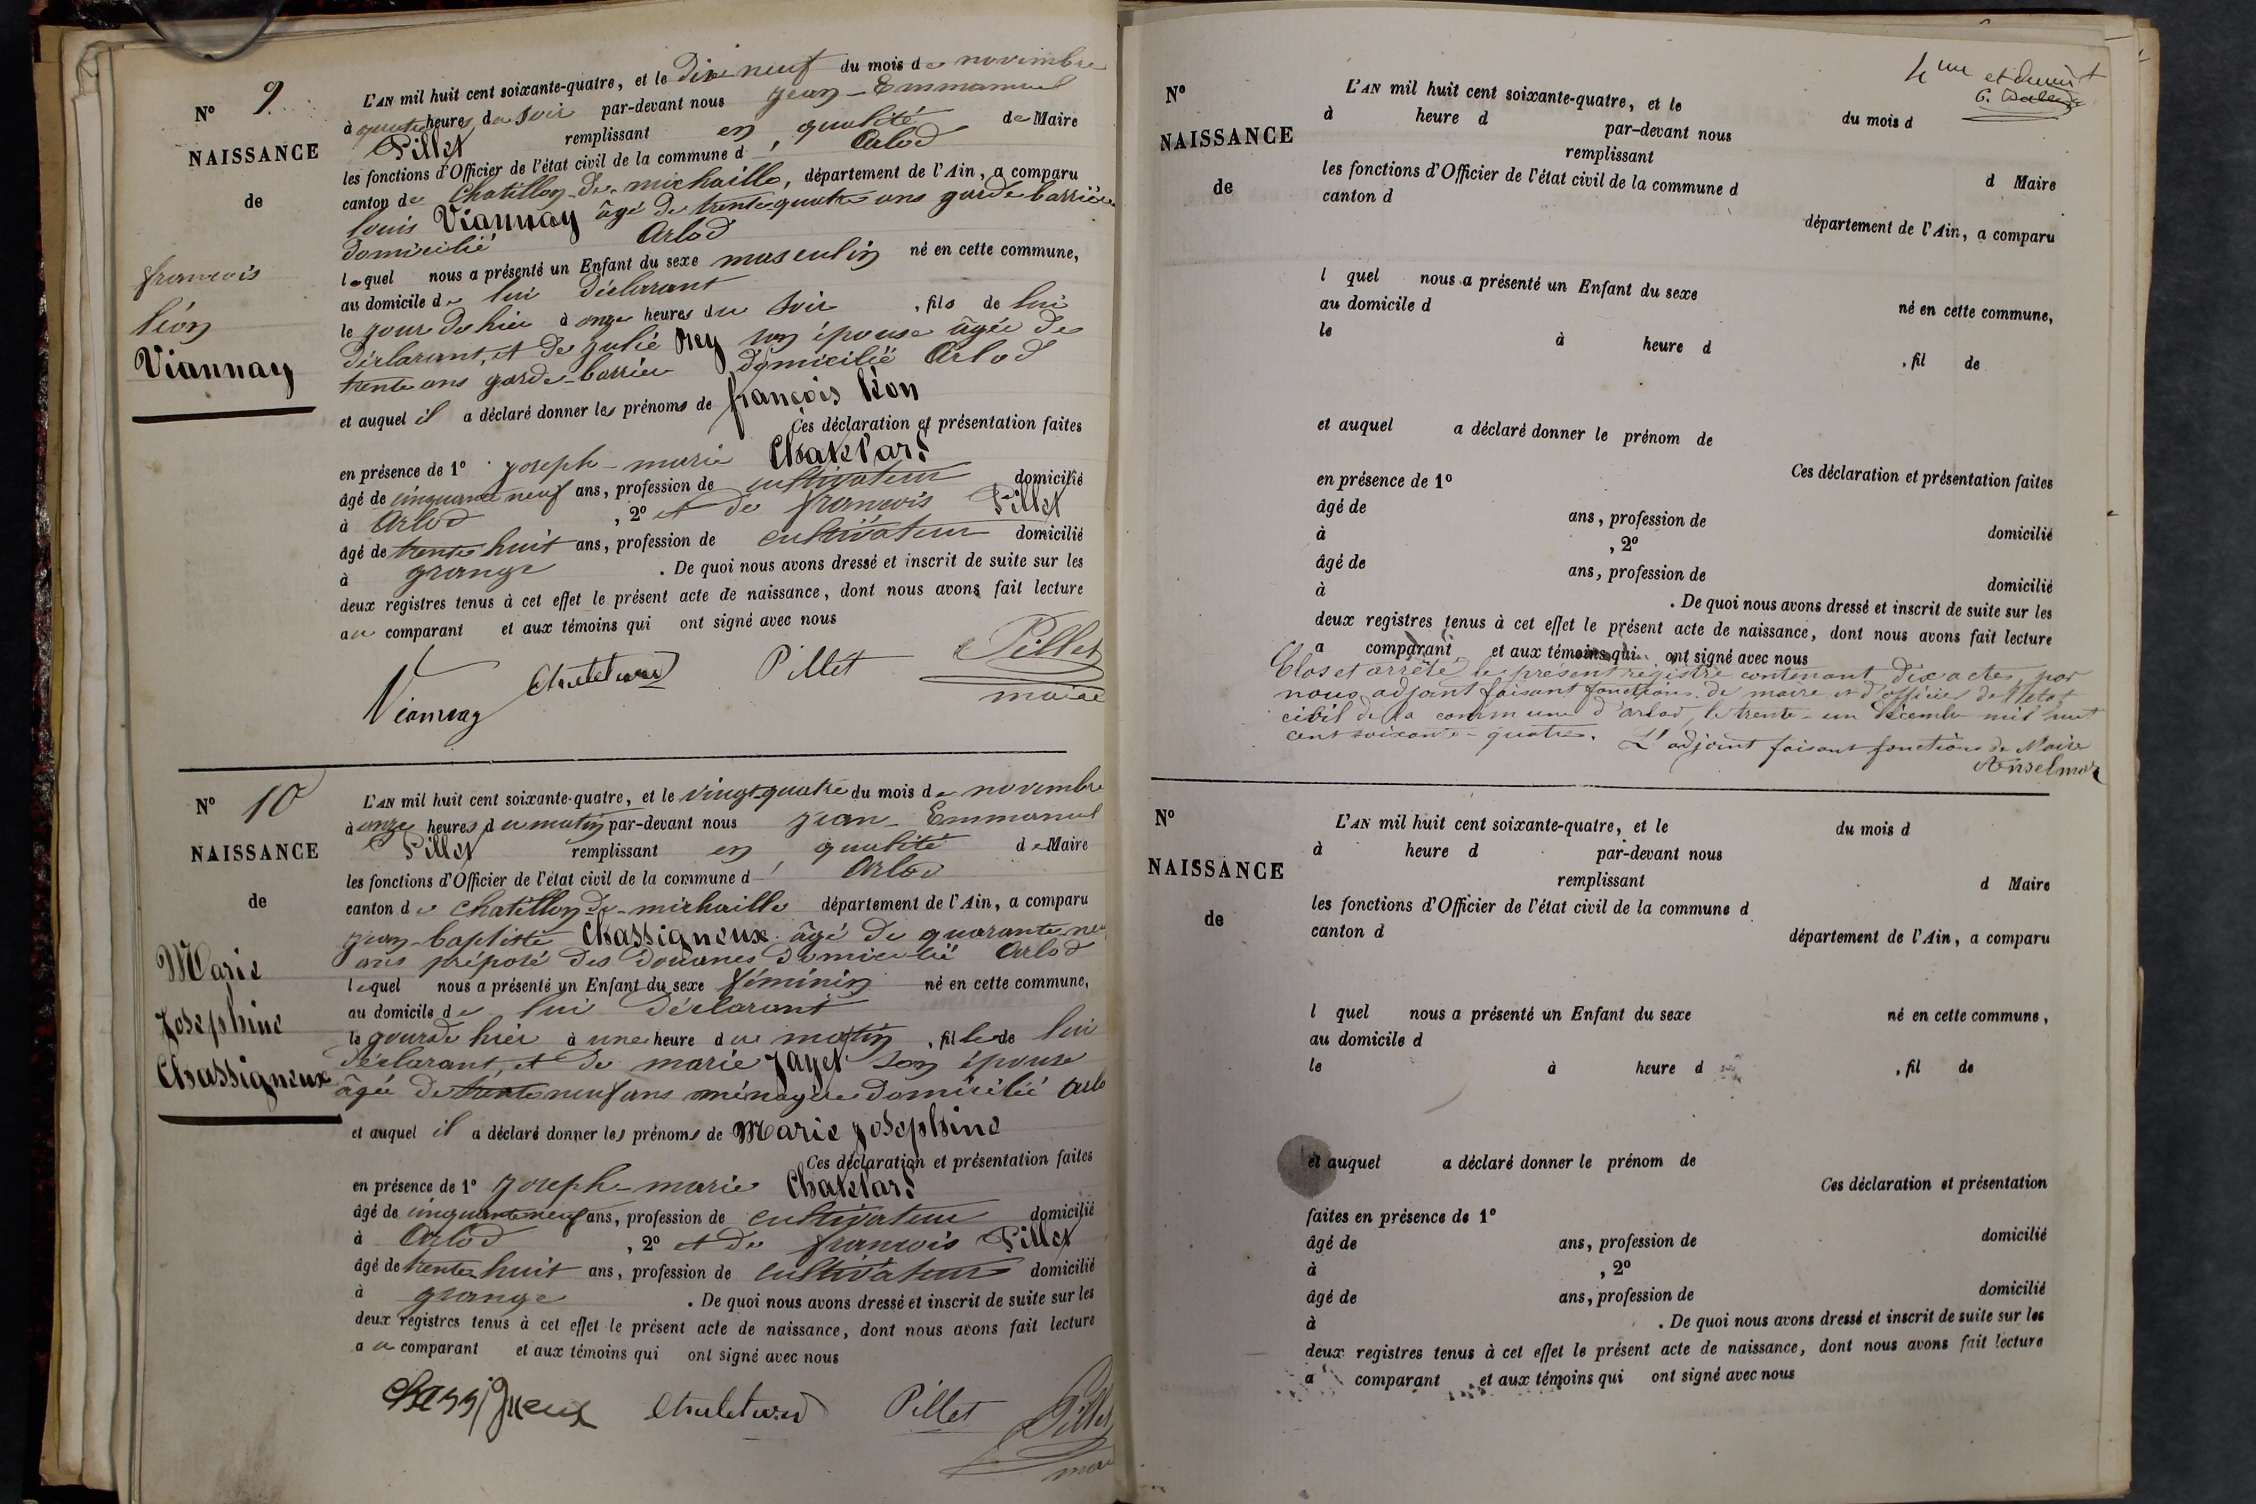 N° 9
NAISSANCE
de
francois
léon
Viannay
L'AN mil huit cent soixante-quatre, et le dix neuf du mois de novembre
à quatre heures du soir par-devant nous jean-Emmanuel
Pillet remplissant en qualité de Maire
les fonctions d'Officier de l'état civil de la commune d' Arlod
canton de Chatillon-de-michaille, département de l'Ain, a comparu
louis Viannay âgé de trente quatre ans garde barrière
domicilié Arlod
lequel nous a présenté un Enfant du sexe masculin né en cette commune,
au domicile de lui déclarant
le jour de hier à onze heures du soir, fils de lui
déclarant, et de julie Rey son épouse âgée de
trente ans garde-barrière domicilié Arlod
et auquel il a déclaré donner les prénoms de françois léon
Ces déclaration et présentation faites
en présence de 1° joseph-marie Chatelard
âgé de cinquante neuf ans, profession de cultivateur domicilié
à Arlod, 2° et de francois Pillet
âgé de trente huit ans, profession de cultivateur domicilié
à grange. De quoi nous avons dressé et inscrit de suite sur les
deux registres tenus à cet effet le présent acte de naissance, dont nous avons fait lecture
au comparant et aux témoins qui ont signé avec nous
Viannay Chatelard Pillet Pillet
maire
N° 10
NAISSANCE
de
Marie
Josephine
Chassigneux
L'AN mil huit cent soixante-quatre, et le vingt-quatre du mois de novembre
à onze heures du matin par-devant nous jean-Emmanuel
Pillet remplissant en qualité de Maire
les fonctions d'Officier de l'état civil de la commune d' Arlod
canton de Chatillon-de-michaille département de l'Ain, a comparu
jean-baptiste Chassigneux âgé de quarante neuf
ans préposé des douanes domicilié Arlod
lequel nous a présenté un Enfant du sexe féminin né en cette commune,
au domicile de lui déclarant
le jour de hier à une heure du matin, fille de lui
déclarant, et de marie Jayet son épouse
âgée de trente neuf ans ménagère domicilié Arlo
et auquel il a déclaré donner les prénoms de Marie josephine
Ces déclaration et présentation faites
en présence de 1° joseph-marie Chatelard
âgé de cinquante neuf ans, profession de cultivateur domicilié
à Arlod, 2° et de francois Pillet
âgé de trente huit ans, profession de cultivateur domicilié
à grange. De quoi nous avons dressé et inscrit de suite sur les
deux registres tenus à cet effet le présent acte de naissance, dont nous avons fait lecture
au comparant et aux témoins qui ont signé avec nous
Chassigneux Chatelard Pillet Pillet
mai
4me et dernier
N°
NAISSANCE
de
L'AN mil huit cent soixante-quatre, et le du mois d
à heure d par-devant nous
remplissant d Maire
les fonctions d'Officier de l'état civil de la commune d
canton d département de l'Ain, a comparu
l quel nous a présenté un Enfant du sexe né en cette commune,
au domicile d
le à heure d, fil de
et auquel a déclaré donner le prénom de
Ces déclaration et présentation faites
en présence de 1°
âgé de ans, profession de domicilié
à, 2°
âgé de ans, profession de domicilié
à. De quoi nous avons dressé et inscrit de suite sur les
deux registres tenus à cet effet le présent acte de naissance, dont nous avons fait lecture
a comparant et aux témoins qui ont signé avec nous
Clos et arrêté le présent registre contenant dix actes, par
nous adjoint faisant fonctions de maire et d'officier de l'état
civil de la commune d'arlod, le trente-un décembre mil huit
cent soixante-quatre. L'adjoint faisant fonctions de Maire
Anselmoz
N°
NAISSANCE
de
L'AN mil huit cent soixante-quatre, et le du mois d
à heure d par-devant nous
remplissant d Maire
les fonctions d'Officier de l'état civil de la commune d
canton d département de l'Ain, a comparu
l quel nous a présenté un Enfant du sexe né en cette commune,
au domicile d
le à heure d, fil de
et auquel a déclaré donner le prénom de
Ces déclaration et présentation
faites en présence de 1°
âgé de ans, profession de domicilié
à, 2°
âgé de ans, profession de domicilié
à. De quoi nous avons dressé et inscrit de suite sur les
deux registres tenus à cet effet le présent acte de naissance, dont nous avons fait lecture
a comparant et aux témoins qui ont signé avec nous